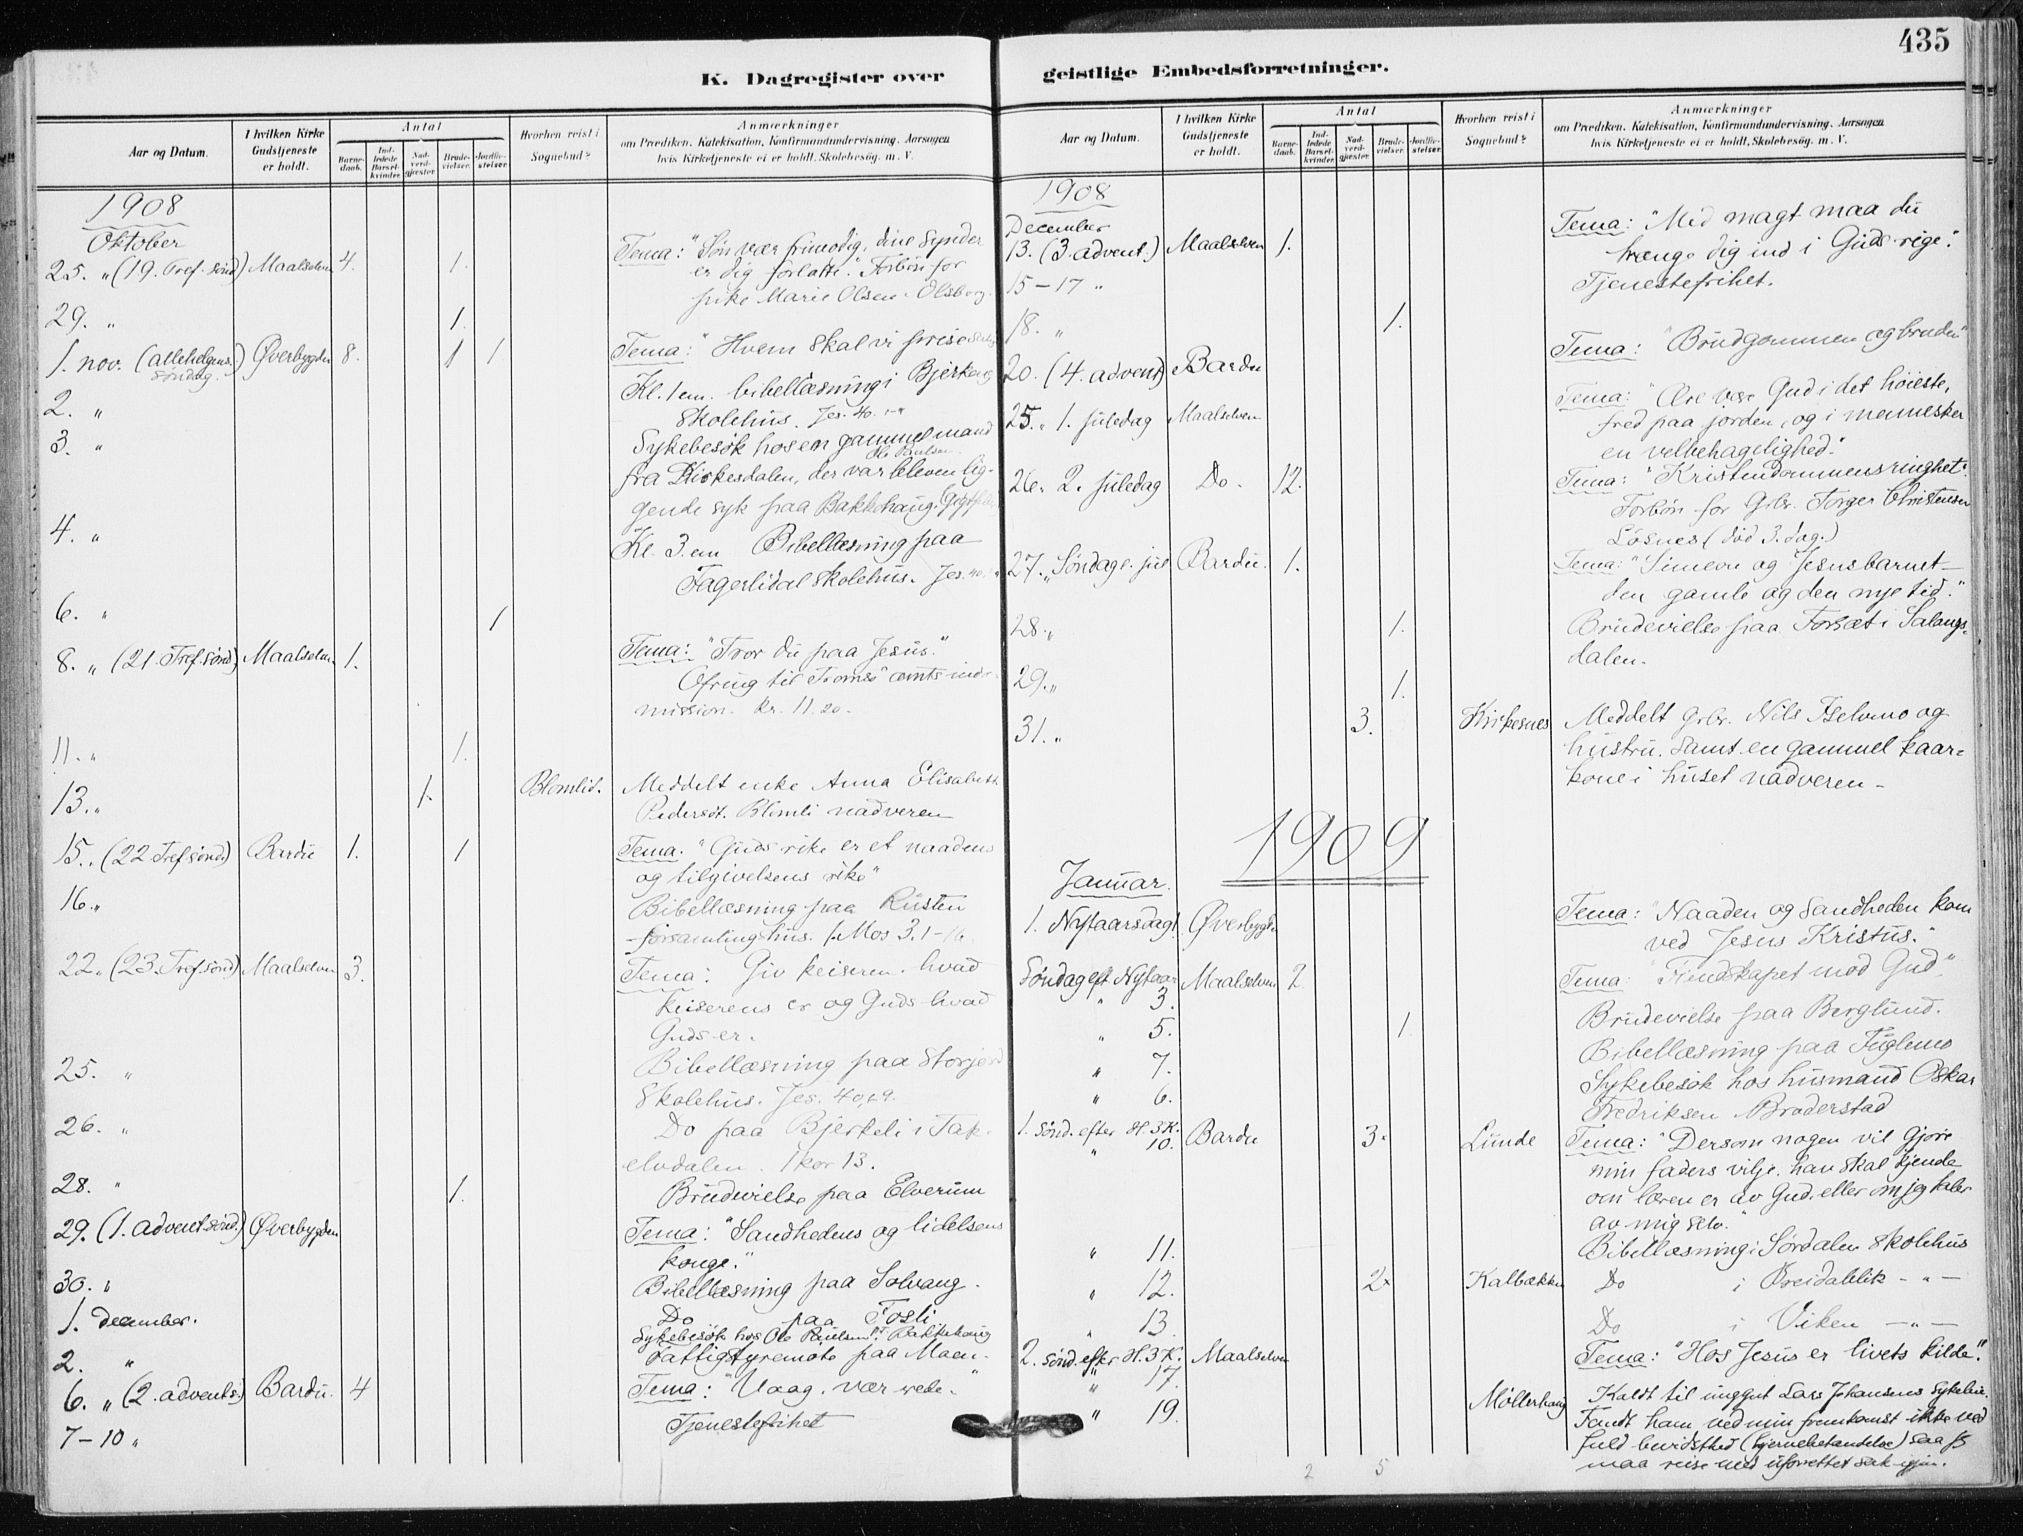 435
K. Dagregister over
geistlige Embedsforretninger.
Aar og Datum.
I hvilken Kirke Gudstjeneste er holdt.
Antal
Barne-daab.
Ind-ledede Barsel-kvinder.
Nad-verd-gjæster.
Brude-vielser.
Jordfæ-stelser.
Hvorhen reist i Sognebud?
Anmærkninger
om Prædiken. Katekisation, Konfirmandundervisning. Aarsagen
hvis Kirketjeneste ei er holdt. Skolebesög. m. V.
1908
Oktober
25. " (19. Tref. sönd) Maalselven 4. 1. Tema: "Sön vær frimodig, dine synder
er dig forlatte." Forbön for
pike Marie Olsen Olsborg.
29. " 1.
1. nov. (allehelgens-söndag.) Øverbygden 8. 1 1 Tema: "Hvem skal vi prise
2. " Kl. 1 em. bibellæsning i Bjerkeng
Skolehus. Jes. 40.
3. " Sykebesök hos en gammel mand
Ole Paulsen
fra Kirkesdalen, der var bleven lig-
gende syk paa Bakkehaug.
4. " Kl. 3 em Bibellæsning paa
Fagerlidal skolehus. Jes. 40.
6. " 1
8. " (21. Tref. sönd) Maalselven. 1. Tema: "Tror du paa Jesus."
Ofring til Tromsö amts indr-
mission. kr. 11.20.
11. " 1.
13. " 1. Blomlid. Meddelt enke Anna Elisabeth
Pedersdt. Blomli nadveren
15. " (22 Tref sönd) Bardu 1. 1 Tema. "Guds rike er et naadens
og tilgivelsens rike"
16. " Bibellæsning paa Rusten
forsamlingshus. 1. Mos 3. 1-16.
22. " (23. Tref. sönd) Maalselven 3. Tema: Giv keiseren, hvad
keiserens er og Guds hvad
Guds er.
25. " Bibellæsning paa Storjord
Skolehus. Jes. 40,29.
26. " Do paa Bjerkeli i Tak-
elvdalen. 1 kor 13.
28. " 1. Brudevielse paa Elverum
29. (1. advent. sönd.) Øverbygden Tema: "Sandhedens og lidelsens
konge."
30. " Bibellæsning paa Solvang.
1. december. Do paa Fosli
Sykebesök hos Ole Paulsen Bakkehaug
2. " Fattigstyremöte paa Moen.
6. " (2. advents.) Bardu. 4 Tema: "Vaag, vær rede."
7-10 " Tjenestefrihet
Aar og Datum.
I hvilken Kirke Gudstjeneste er holdt.
Antal
Barne-daab.
Ind-ledede Barsel-kvinder.
Nad-verd-gjæster.
Brude-vielser.
Jordfæ-stelser.
Hvorhen reist i Sognebud?
Anmærkninger
om Prædiken. Katekisation, Konfirmandundervisning. Aarsagen
hvis Kirketjeneste ei er holdt. Skolebesög. m. V.
1908
December
13. (3. advent.) Maalselven 1. Tema: "Med magt maa du
trænge dig ind i Guds rige".
15-17 " Tjenestefrihet.
18. " 1.
20. (4. advent) Bardu Tema: "Brudgommen og bruden"
25. " 1. juledag Maalselven Tema: "Ære være Gud i det höieste,
fred paa jorden, og i mennesker
en velbehagelighed."
26. 2. juledag Do. 12. Tema: "Kristendommens ringhet".
Forbön for Grbr. Torger Christensen
Lösnes (död 3. dag.)
27. " Söndag e. jul Bardu. 1. Tema: "Simeon og Jesusbarnet-
den gamle og den nye tid."
28. " 1. Brudevielse paa Forset i Salangs-
dalen.
29. " 1.
31. " 3. Kirkesnes Meddelt Grbr. Nils Iselvmo og
hustru. samt en gammel kaar-
kone i huset nadveren.
1909
Januar.
1. Nytaarsdag. Øverbygd. Tema: "Naaden og Sandheden kom
ved Jesus Kristus."
Söndag eft Nytaar Maalselven 2. Tema: "Fiendskapet mod Gud".
" 3.
" 5. 1. Brudevielse paa Berglund.
" 7. Bibellæsning paa Fuglemo
" 6. Sykebesök hos husmand Oskar
Fredriksen Broderstad
1. Sönd. efter H. 3 K. Bardu 3. Lunde Tema: "Dersom nogen vil gjöre
" 10.
min faders vilje, han skal kjende
om læren er av Gud, eller om jeg taler
av mig selv."
" 11. Bibellæsning i Sördalen Skolehus
" 12. 2. Kalbækken Do i Øreidablik - " -
" 13 Do i Viken - " -
2. Sönd. efter H. 3 K. Maalselven Tema: "Hos Jesus er livets kilde".
" 17.
" 19. Möllerhaug Kaldt til unggut Lars Johansens sykeleie.
Fandt ham ved min fremkomst ikke ved
fuld bevidsthed (hjernebetændelse) saa jeg
maa reise med uforrettet sak igjen.
2 5